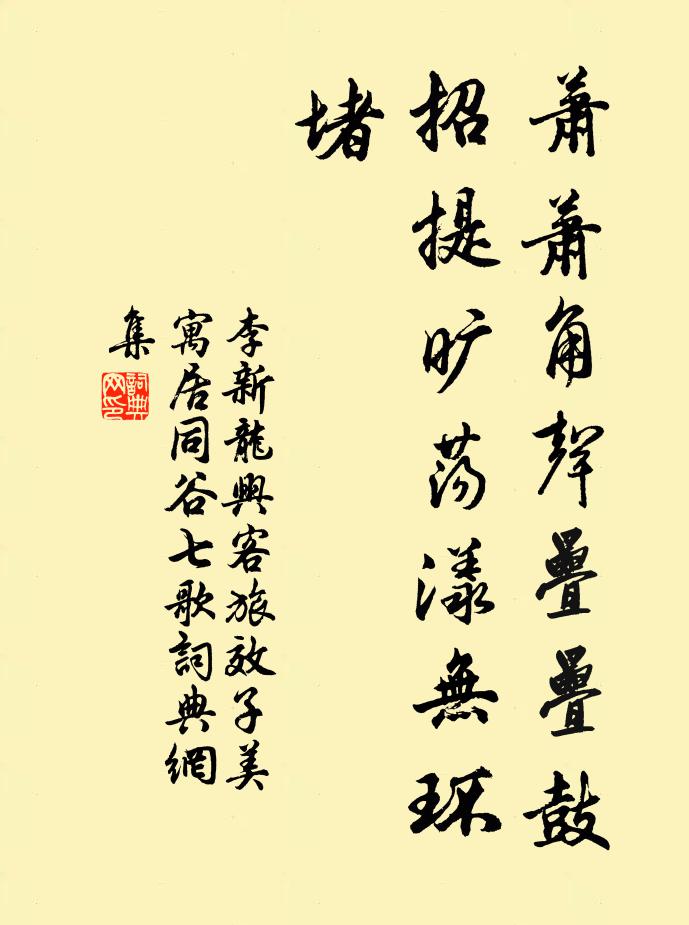 蕭蕭角聲疊疊鼓
招提曠蕩漾無環
堵
李新龍興客旅效子美
寓居同谷七歌詞典網
集
詞典
网印